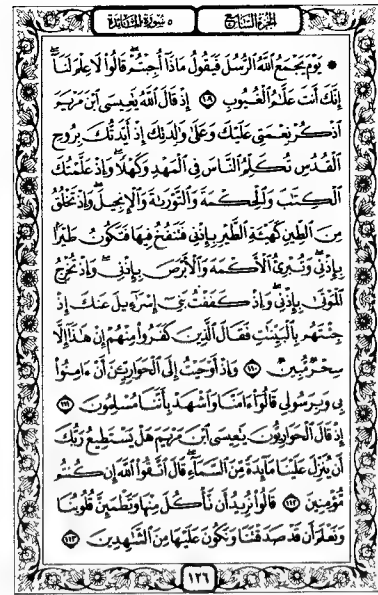 الجزء السابع ٥ سورة المائدة
يَوْمَ يَجْمَعُ ٱللَّهُ ٱلرُّسُلَ فَيَقُولُ مَاذَآ أُجِبْتُمْ ۖ قَالُوا۟ لَا عِلْمَ لَنَآ ۖ
إِنَّكَ أَنتَ عَلَّٰمُ ٱلْغُيُوبِ ١٠٩ إِذْ قَالَ ٱللَّهُ يَٰعِيسَى ٱبْنَ مَرْيَمَ
ٱذْكُرْ نِعْمَتِى عَلَيْكَ وَعَلَىٰ وَٰلِدَتِكَ إِذْ أَيَّدتُّكَ بِرُوحِ
ٱلْقُدُسِ تُكَلِّمُ ٱلنَّاسَ فِى ٱلْمَهْدِ وَكَهْلًا ۖ وَإِذْ عَلَّمْتُكَ
ٱلْكِتَٰبَ وَٱلْحِكْمَةَ وَٱلتَّوْرَىٰةَ وَٱلْإِنجِيلَ ۖ وَإِذْ تَخْلُقُ
مِنَ ٱلطِّينِ كَهَيْـَٔةِ ٱلطَّيْرِ بِإِذْنِى فَتَنفُخُ فِيهَا فَتَكُونُ طَيْرًۢا
بِإِذْنِى ۖ وَتُبْرِئُ ٱلْأَكْمَهَ وَٱلْأَبْرَصَ بِإِذْنِى ۖ وَإِذْ تُخْرِجُ
ٱلْمَوْتَىٰ بِإِذْنِى ۖ وَإِذْ كَفَفْتُ بَنِىٓ إِسْرَٰٓءِيلَ عَنكَ إِذْ
جِئْتَهُم بِٱلْبَيِّنَٰتِ فَقَالَ ٱلَّذِينَ كَفَرُوا۟ مِنْهُمْ إِنْ هَٰذَآ إِلَّا
سِحْرٌ مُّبِينٌ ١١٠ وَإِذْ أَوْحَيْتُ إِلَى ٱلْحَوَارِيِّـۧنَ أَنْ ءَامِنُوا۟
بِى وَبِرَسُولِى قَالُوٓا۟ ءَامَنَّا وَٱشْهَدْ بِأَنَّنَا مُسْلِمُونَ ١١١
إِذْ قَالَ ٱلْحَوَارِيُّونَ يَٰعِيسَى ٱبْنَ مَرْيَمَ هَلْ يَسْتَطِيعُ رَبُّكَ
أَن يُنَزِّلَ عَلَيْنَا مَآئِدَةً مِّنَ ٱلسَّمَآءِ ۖ قَالَ ٱتَّقُوا۟ ٱللَّهَ إِن كُنتُم
مُّؤْمِنِينَ ١١٢ قَالُوا۟ نُرِيدُ أَن نَّأْكُلَ مِنْهَا وَتَطْمَئِنَّ قُلُوبُنَا
وَنَعْلَمَ أَن قَدْ صَدَقْتَنَا وَنَكُونَ عَلَيْهَا مِنَ ٱلشَّٰهِدِينَ ١١٣
١٢٦